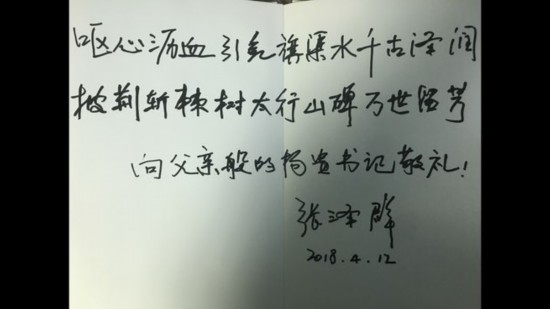 呕心沥血引红旗渠水千古泽润
披荆斩棘树太行山碑万世留芳
向父亲般的杨贵书记敬礼！
张泽群
2018.4.12